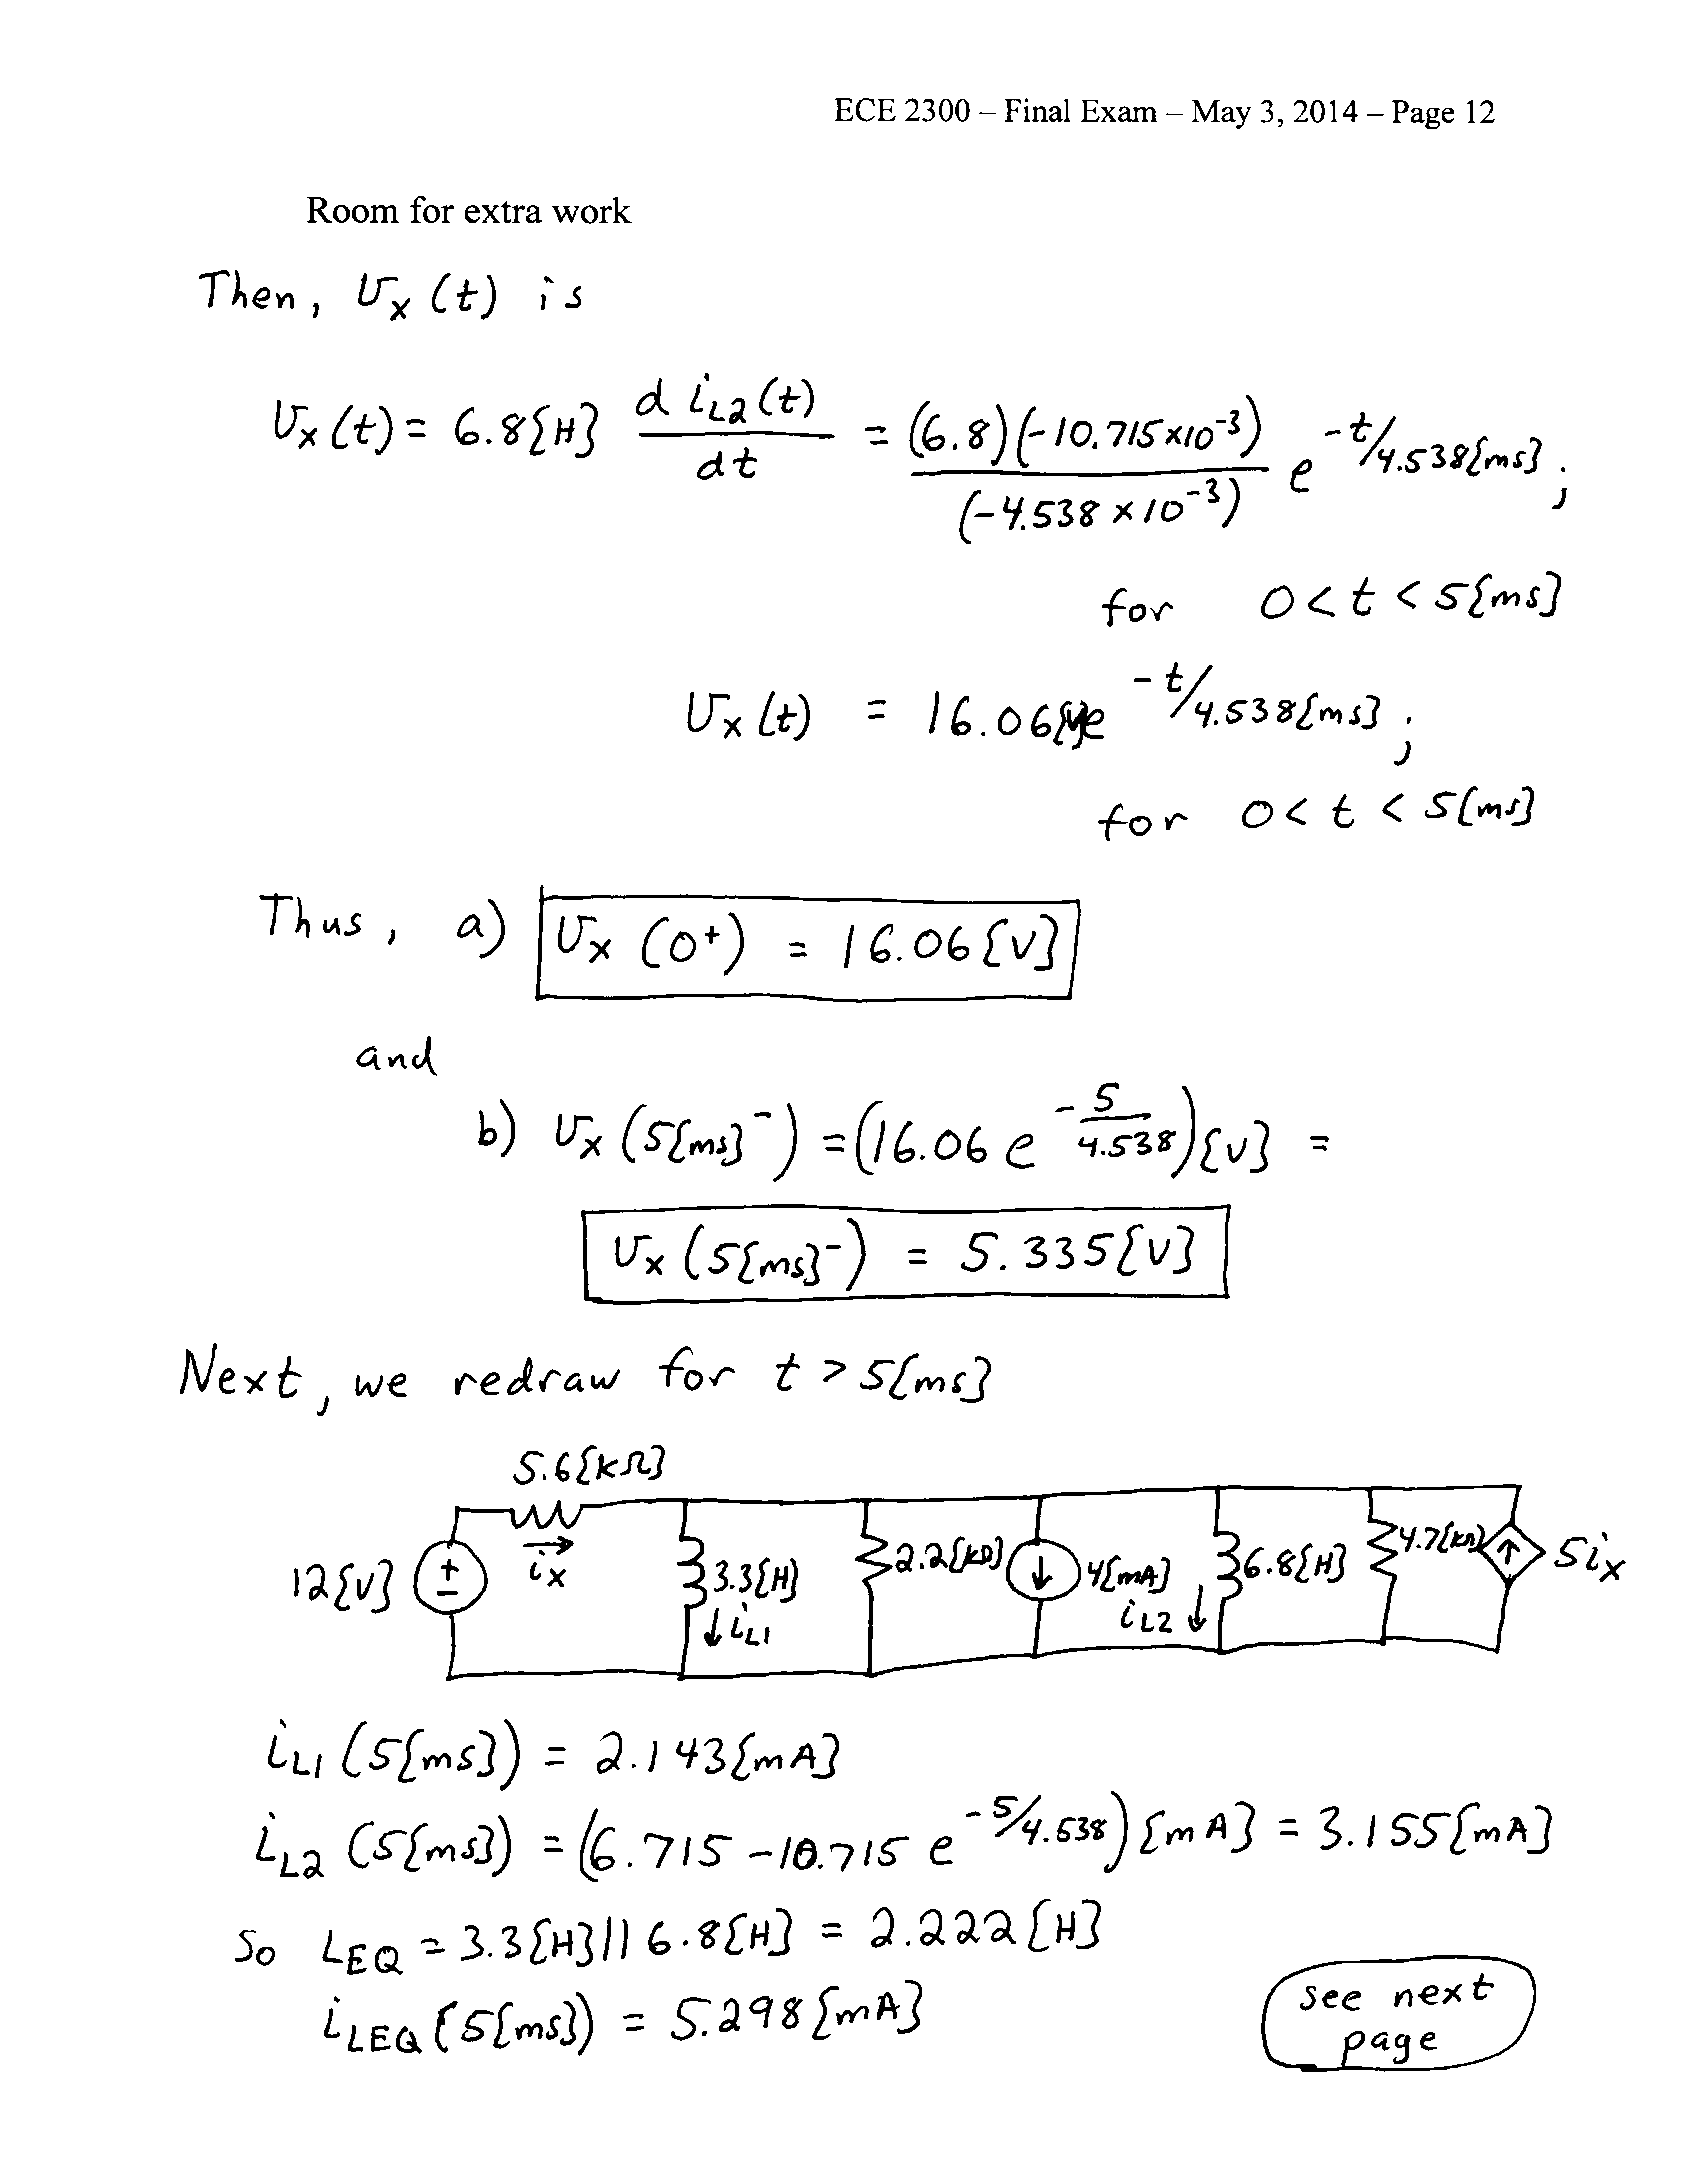 ECE 2300 – Final Exam – May 3, 2014 – Page 12
Room for extra work
Then, v_x(t) is
v_x(t) = 6.8{H} d i_L2(t)/dt = (6.8)(-10.715×10^-3)/(-4.538×10^-3) e^-t/4.538{ms};
for 0<t<5{ms}
v_x(t) = 16.06{V}e^-t/4.538{ms};
for 0<t<5{ms}
Thus, a) v_x(0^+) = 16.06{V}
and
b) v_x(5{ms}^-) = (16.06 e^-5/4.538){V} =
v_x(5{ms}^-) = 5.335{V}
Next, we redraw for t>5{ms}
5.6{kΩ}
12{V} + - i_x 3.3{H} 2.2{kΩ} 4{mA} 6.8{H} 4.7{kΩ} 5i_x
i_L1 i_L2
i_L1(5{ms}) = 2.143{mA}
i_L2(5{ms}) = (6.715-10.715 e^-5/4.538){mA} = 3.155{mA}
So L_EQ = 3.3{H}||6.8{H} = 2.222{H}
i_LEQ(5{ms}) = 5.298{mA}
see next
page